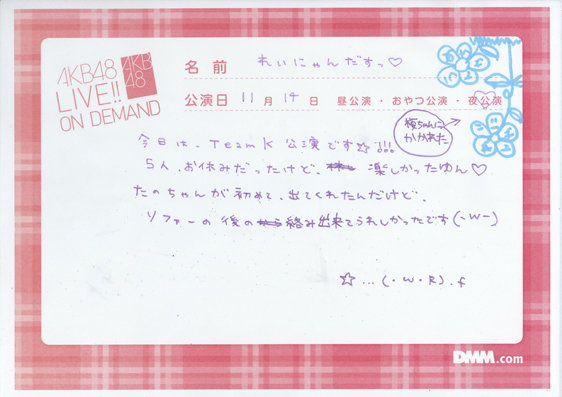 AKB48
LIVE!!
ON DEMAND
AKB
48
名前 れいにゃんだすっ♡
公演日 11月14日 昼公演・おやつ公演・夜公演
横ちゃんに
かかれた
今日は、TeamK 公演です☆!!!
5人、お休みだったけど、楽しかったゆん♡
たのちゃんが初めて、出てくれたんだけど、
リファーの後の絡み出来てうれしかったです(・w-)
☆...(・w・R).f
DMM.com